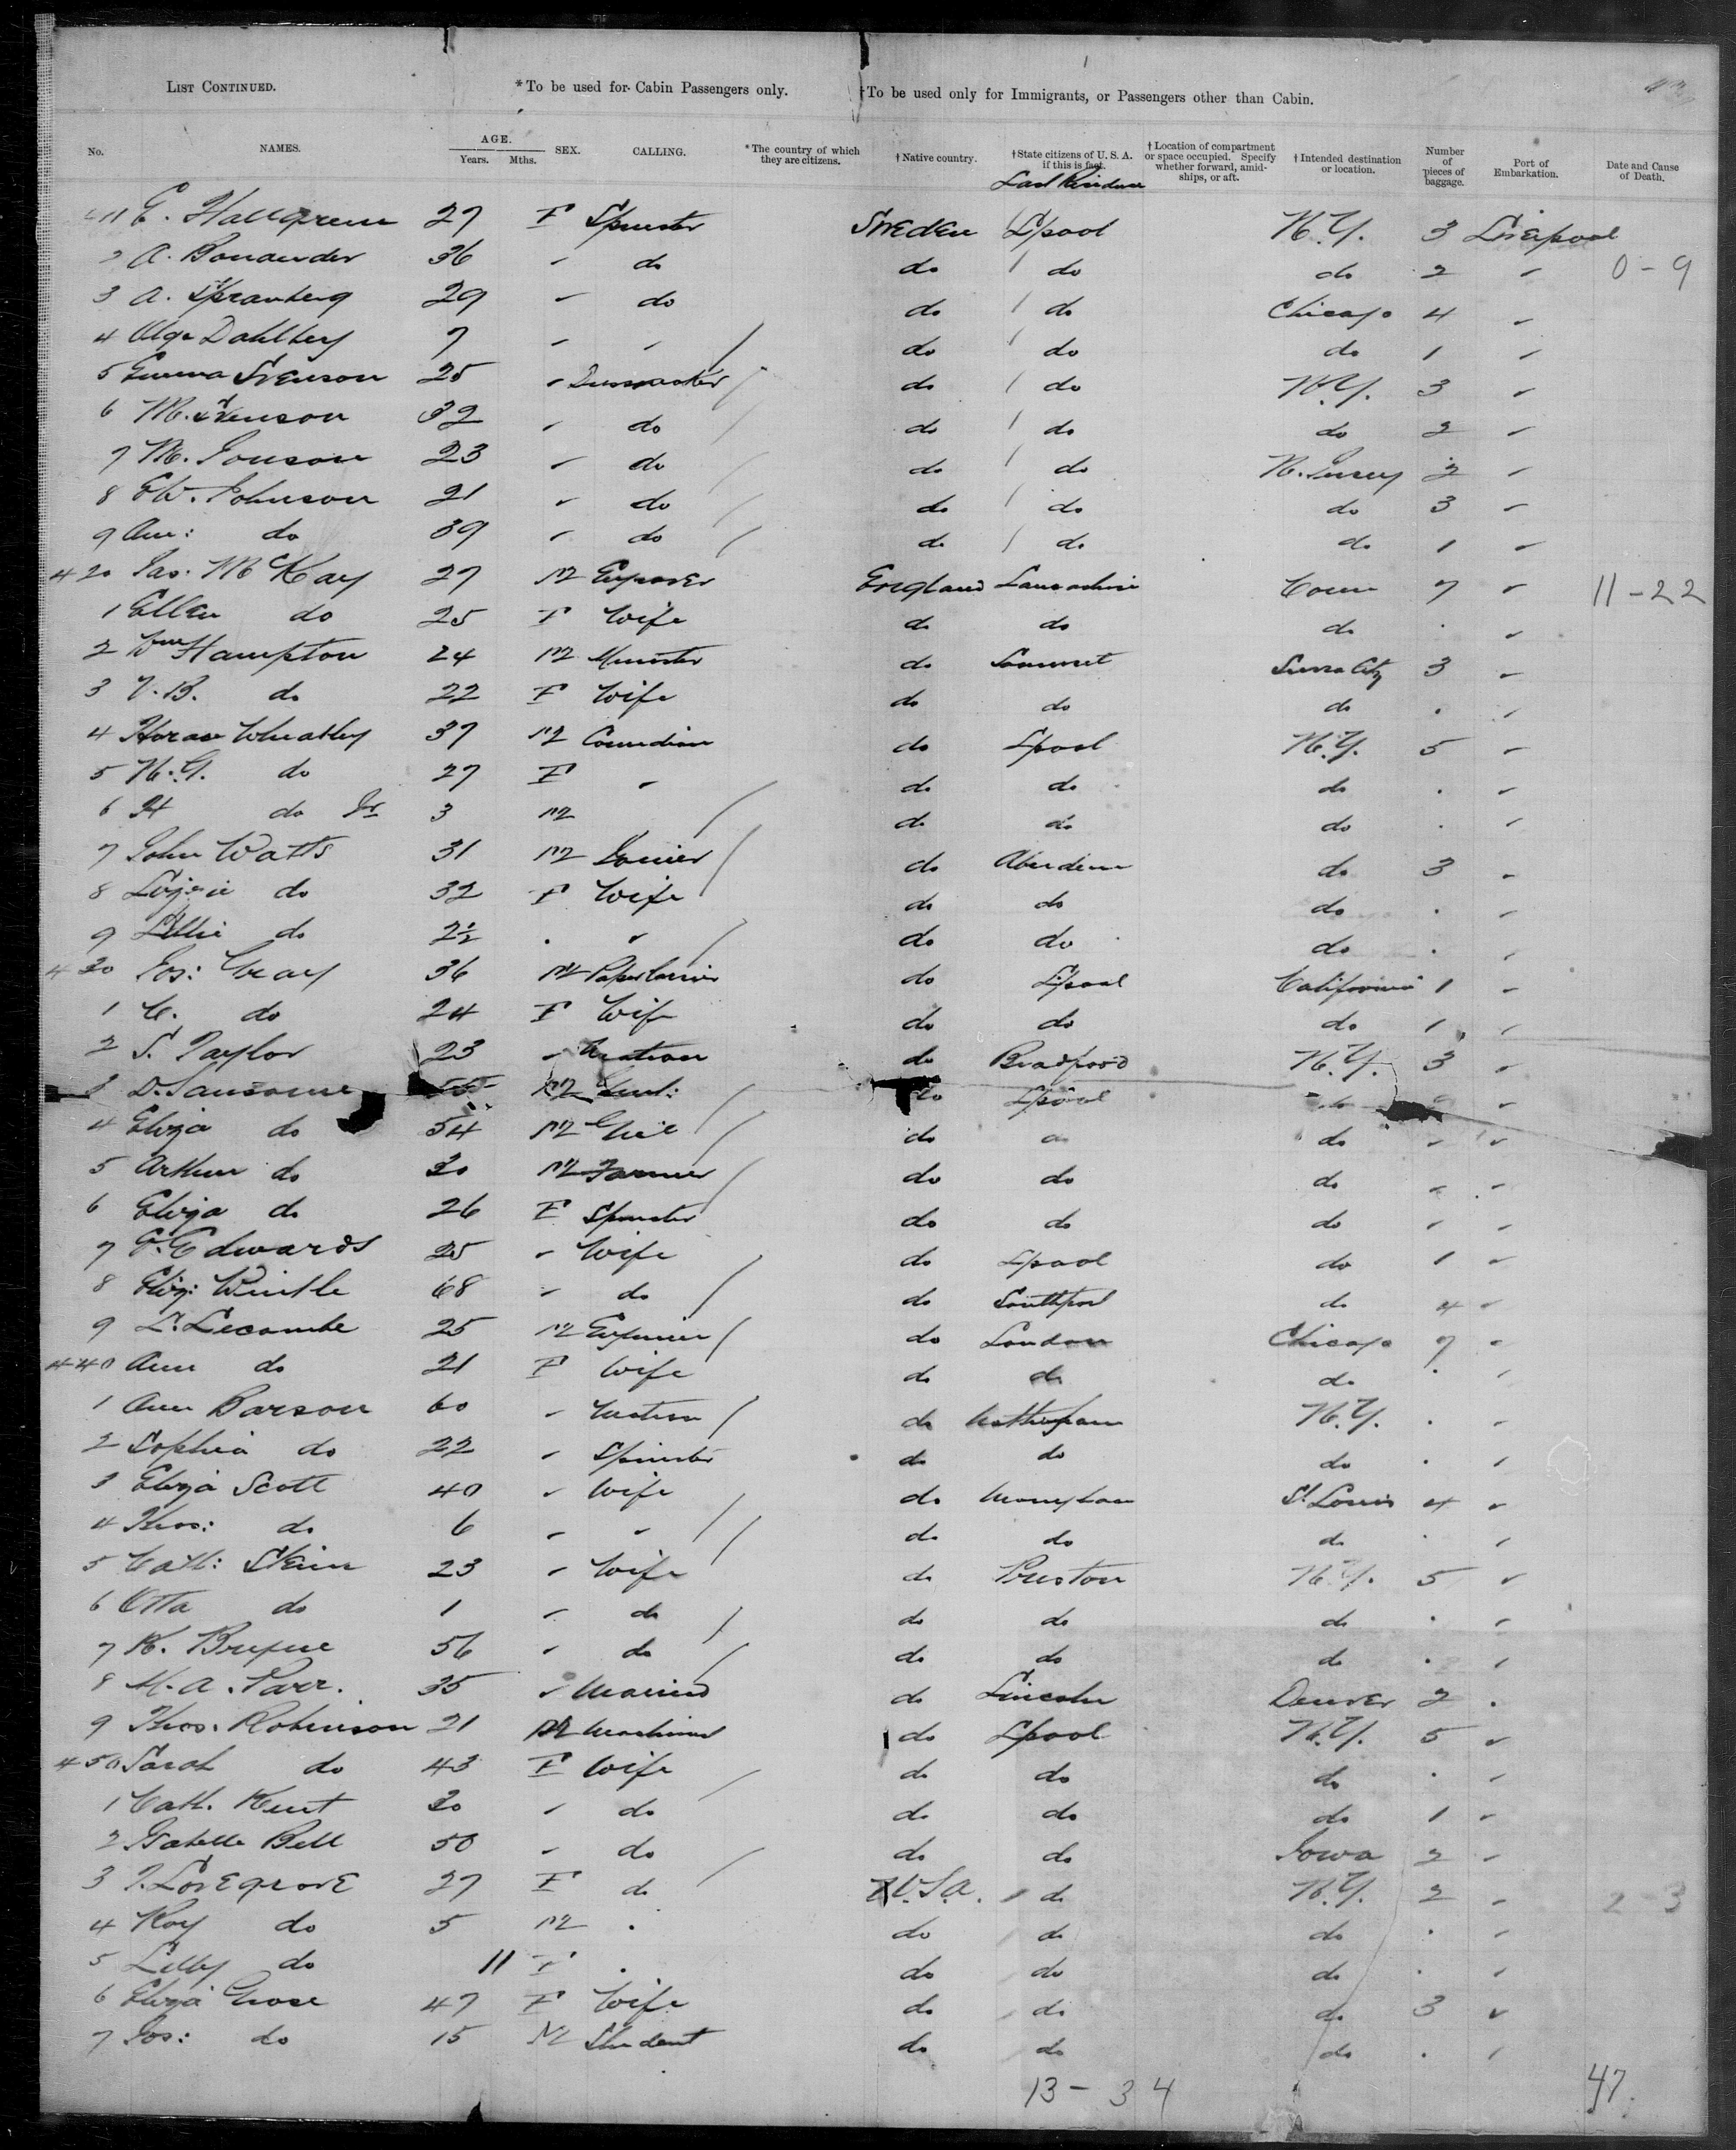 LIST CONTINUED. *To be used for Cabin Passengers only. †To be used only for Immigrants, or Passengers other than Cabin.
No. NAMES. AGE. Years. Mths. SEX. CALLING. *The country of which they are citizens. †Native country. †State citizens of U. S. A. if this is fact. †Location of compartment or space occupied. Specify whether forward, amidships, or aft. †Intended destination or location. Number of pieces of baggage. Port of Embarkation. Date and Cause of Death.
Last Residence
411 E. Hallgreen 27 F Spinster Sweden L'pool N.Y. 3 Liverpool
2 A. Bonander 36 " do do do do 2 " 0-9
3 A. 29 " do do do Chicago 4 "
4 Olga Dahlberg 7 " " do do do 1 "
5 Emma Svenson 25 " Dressmaker do do N.Y. 3 "
6 M. Svenson 32 " do do do do 2 "
7 M. Jonson 23 " do do do N. Jersey 2 "
8 EW. Johnson 21 " do do do do 3 "
9 Ann: do 39 " do do do do 1 "
420 Jas. McKay 27 M Engraver England Lancashire Conn 7 " 11-22
1 Ellen do 25 F Wife do do do . "
2 Wm Hampton 24 M Minister do Somerset City 3 "
3 V.B. do 22 F Wife do do do . "
4 Horace Wheatley 37 M Comedian do L'pool N.Y. 5 "
5 N.G. do 27 F " do do do . "
6 H do Jr 3 M do do do . "
7 John Watts 31 M Joiner do Aberdeen do 3 "
8 Lizzie do 32 F Wife do do do . "
9 Lillie do 2½ . " do do do . "
430 Jos: Gray 36 M do L'pool California 1 "
1 C. do 24 F Wife do do do 1 "
2 S. Taylor 23 " Matron do Bradford N.Y. 3 "
3 D. Sansome 55 M Gent: do L'pool do "
4 Eliza do 54 M do do do " "
5 Arthur do 20 M Farmer do do do " "
6 Eliza do 26 F Spinster do do do " "
7 E. Edwards 25 " Wife do L'pool do 1 "
8 Eliz: Wintle 68 " do do Southport do 4 "
9 L. Lecombe 25 M Engineer do London Chicago 7 "
440 Ann do 21 F Wife do do do . "
1 Ann Barson 60 " Matron do Nottingham N.Y. . "
2 Sophia do 22 " Spinster do do do . "
3 Eliza Scott 40 " Wife do St Louis 4 "
4 Thos: do 6 " " do do do . "
5 Cath: Stein 23 " Wife do Preston N.Y. 5 "
6 Otta do 1 " do do do do . "
7 K. 56 " do do do do . "
8 M.A. Parr. 35 " Married do Lincoln Denver 2 .
9 Thos. Robinson 21 M Machinist do L'pool N.Y. 5 "
450 Sarah do 43 F Wife do do do . "
1 Cath. Kent 20 " do do do do 1 "
2 Isabella Bell 50 " do do do Iowa 2 "
3 J. Lovegrove 27 F do U.S.A. do N.Y. 2 " 2-3
4 Roy do 5 M . do do do . "
5 Lilly do 11 F . do do do . "
6 Eliza 47 F Wife do do do 3 "
7 Jos: do 15 M Student do do do . "
13 - 34 47.